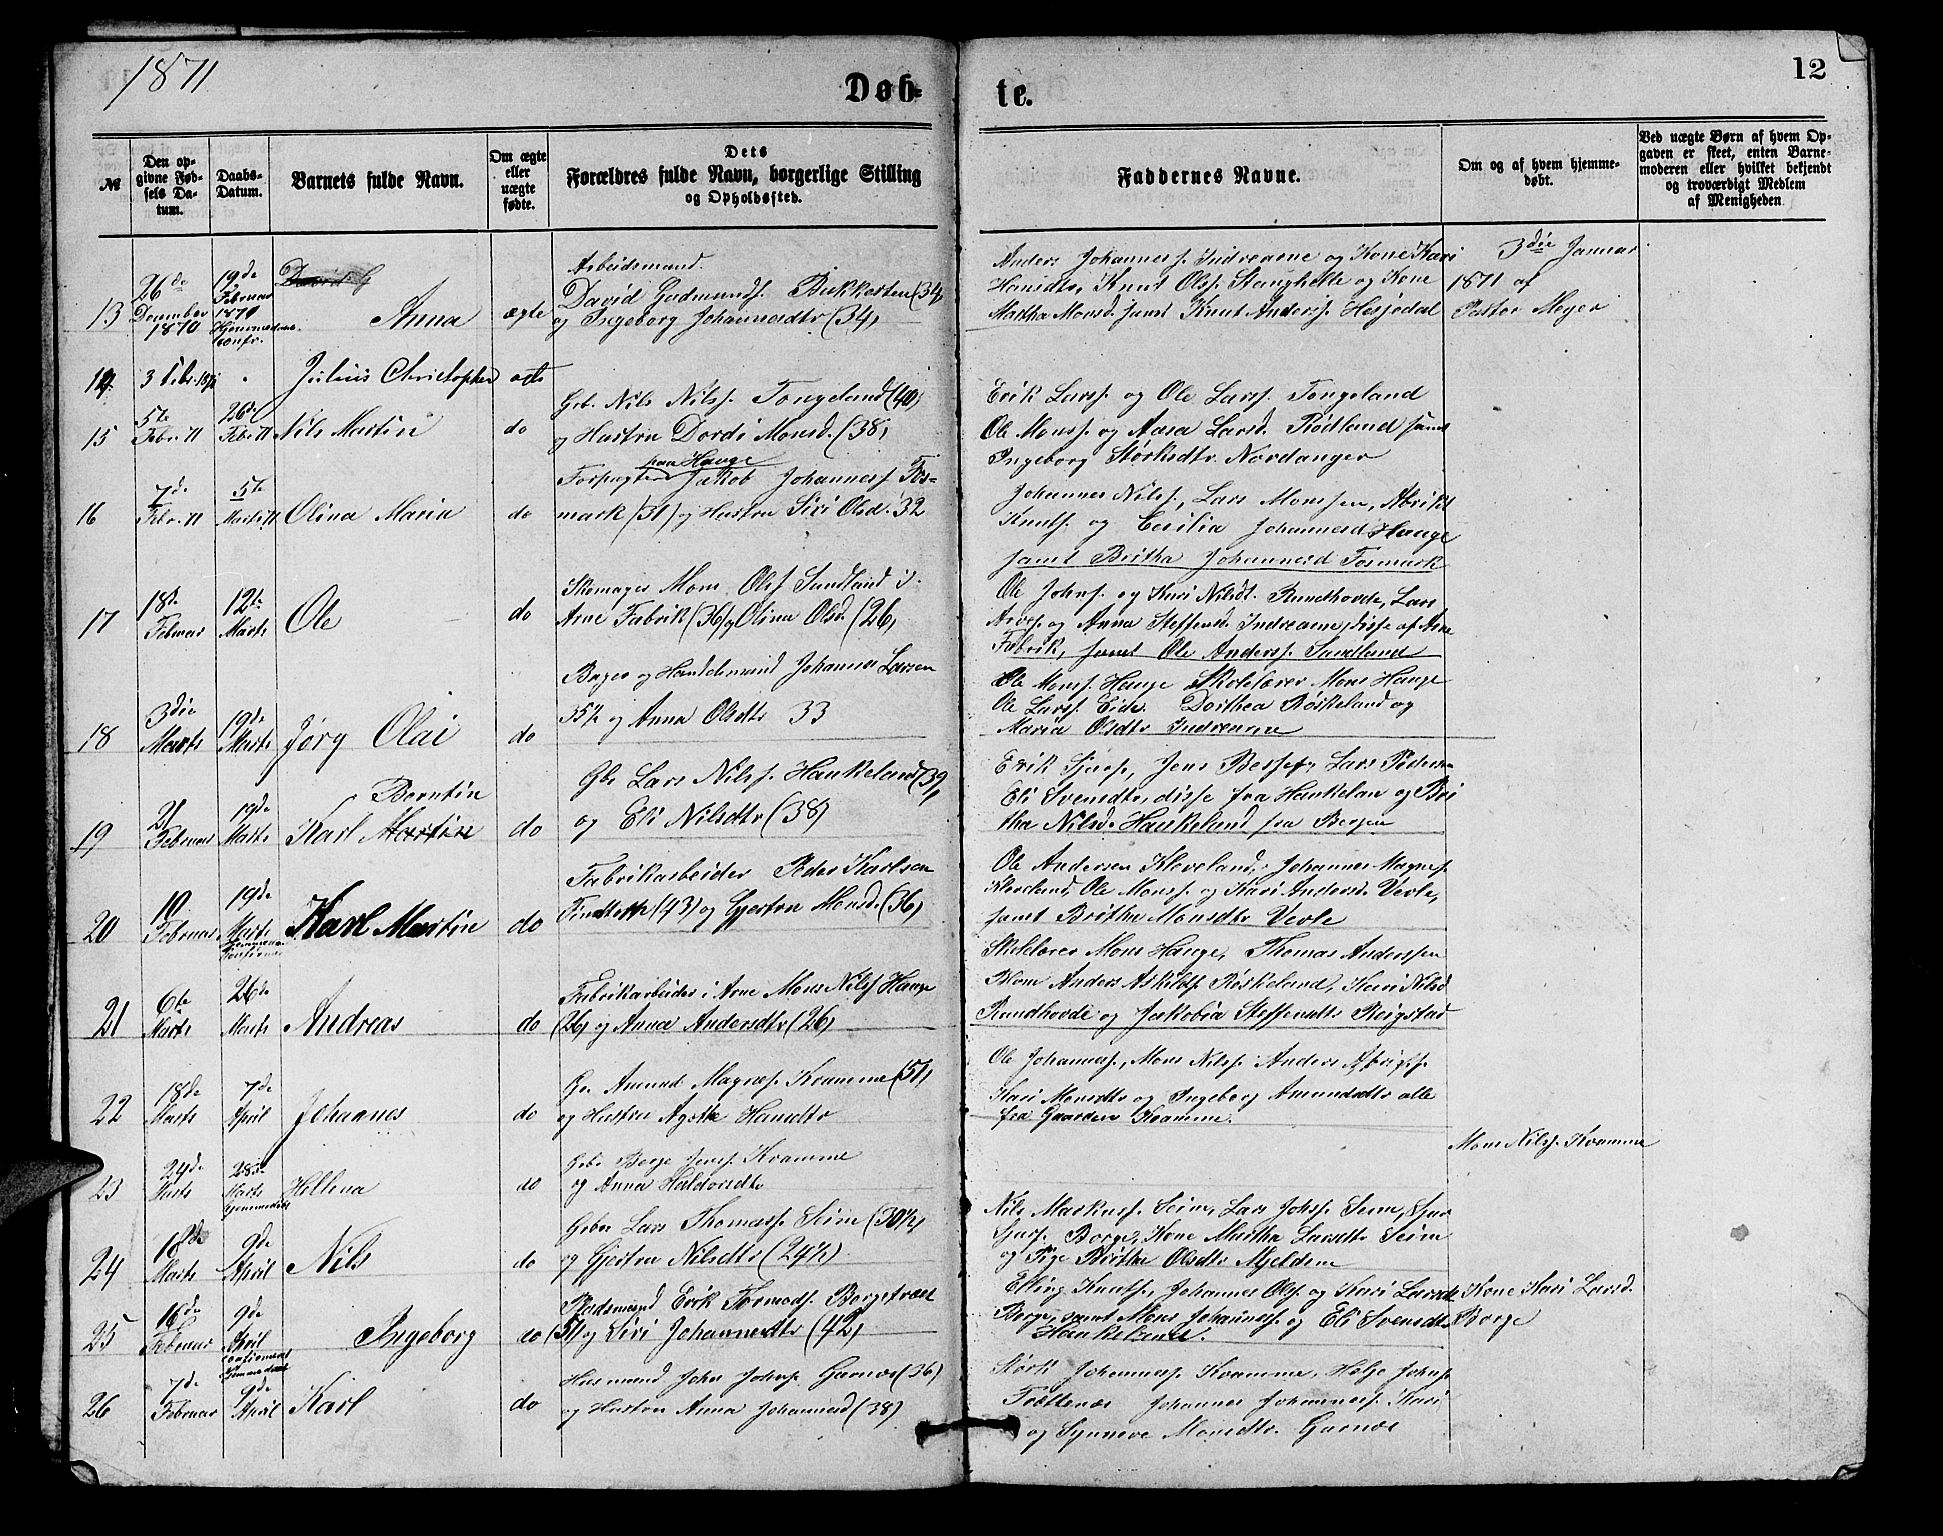 1871
12
Døb-
te.
№
Den op-
givne Fød-
sels Da-
tum.
Daabs-
Datum.
Barnets fulde Navn.
Om ægte
eller
uægte
fødte.
Dets
Forældres fulde Navn, borgerlige Stilling
og Opholdssted.
Faddernes Navne.
Om og af hvem hjemme-
døbt.
Ved uægte Børn af hvem Op-
gaven er skeet, enten Barne-
moderen eller hvilket bekjendt
og troværdigt Medlem
af Menigheden
13
26de
December
1870
19de
Februar
Anna
ægte
Arbeidsmand.
David Gudmunds. Bukkesten (34)
og Ingeborg Johannesdtr (34)
Anders Johanness. Indrearne og Kone Kari
Knut Olss. og Kone
Martha Monsd. samt Knut Anderss. Hesjedal
3die Januar
1871 af
Pastor Meyer
14
3 Febr. 1871
Julius Christopher
15
5te
Febr. 71
26de
Febr. 71
Nils Martin
do
Gbr. Nils Nilss. Tongeland (40)
og Hustru Dordi Monsd. (38)
Erik Larss. og Ole Larss. Tongeland
Ole Monss. og Larsd. Rødland samt
Ingeborg Størksdtr. Nordanger
16
7de
Febr. 71
5te
Marts 71
Olina Maria
do
paa Hauge
Forpagter Jakob Johanness. Fos-
mark (31) og Hustru Siri Olsd. 32
Johannes Nilss., Lars Monssen,
Knuts. og Cecilia Johannesd Hauge
samt Britha Johannesd Fosmark
17
18de
Februar
12te
Marts
Ole
do
Skomager Mons Olss Sundland i
Arne Fabrik (36) og Olina Olsd. (26)
Ole Johns. og Kari Nilsdt. Rundhovde, Lars
og Anna Steffensd. Indrearne, disse af Arne
Fabrik, samt Ole Anderss. Sundland
18
3die
Marts
19de
Marts
Jørg Olai
do
Bager og Handelsmand Johannes Larsen
35½ og Anna Olsdtr 33
Ole Monss. Hauge Skolelærer Mons Hauge
Ole Larss. Eide. Dorthea Røskeland og
Maria Olsdtr Indrearne
19
21
Februar
19de
Marts
Berntin
Karl Martin
do
Gbr Lars Nilss. Haukeland (39)
og Eli Nilsdtr (38)
Erik Sjurs., Jens Lars Pedersen
Eli Svensdtr, disse fra Haukelan og Bri
tha Nilsd. Haukeland fra Bergen
20
19
Februar
19de
Marts
Karl Martin
do
Fabrikarbeider Peder Karlsen
(43) og Gjertru Monsd. (36)
Ole Andersen Kleveland, Johannes Magnes.
Kleveland, Ole Monss. og Kari Andersd. Vevle,
samt Britha Monsdtr Vevle
21
6te
Marts
26de
Marts
Andreas
do
Fabrikarbeider i Arne Mons Nilss Hauge
(26) og Anna Andersdtr (26)
Skolelærer Mons Hauge, Thomas Anderssen
Blom Anders Askilds. Røskeland, Kari Nilsd
Rundhovde og Jakobia Steffensdtr Reigstad
22
18de
Marts
7de
April
Johannes
do
Gr Amund Magnes. Kvamme (51)
og Hustru Agathe Hansdtr
Ole Johanness., Mons Nilss. Anders
Kari Monsdtr og Ingeborg Amundsdtr alle
fra Gaarden Kvamme.
23
24de
Marts
28de
Marts
Hjemmedøbt
Hellena
do
Gbr Børge Jenss. Kvamme
og Anna Haldorsdtr
Mons Nilss. Kvamme
24
Marts
9de
April
Nils
do
Gbr Lars Thomass. Seim (30½)
og Gjertru Nilsdtr (24½)
Nils Markuss. Seim, Lars Johss. Seim, Sjur
Borge, Kone Martha Larsdtr Seim
og Pige Britha Olsdtr Mjeldem
25
16de
Februar
9de
April
Ingeborg
do
Pladsmand Erik Tormods. Borgetræet
(51) og Siri Johannesdtr (42)
Elling Knuts., Johannes Olss. og Kari Larsdt
Borge, samt Mons Johanness. og Eli Svensdtr
Haukeland.
Kone Kari Larsd.
Borge
26
7de
Februar
9de
April
Karl
do
Husmand John Johns. Garnes (36)
og Hustru Anna Johannesd (38)
Størk Johanness. Kvamme, Helje Johns.
Johannes Johanness. Kari
og Synneve Monsdtr. Garnes